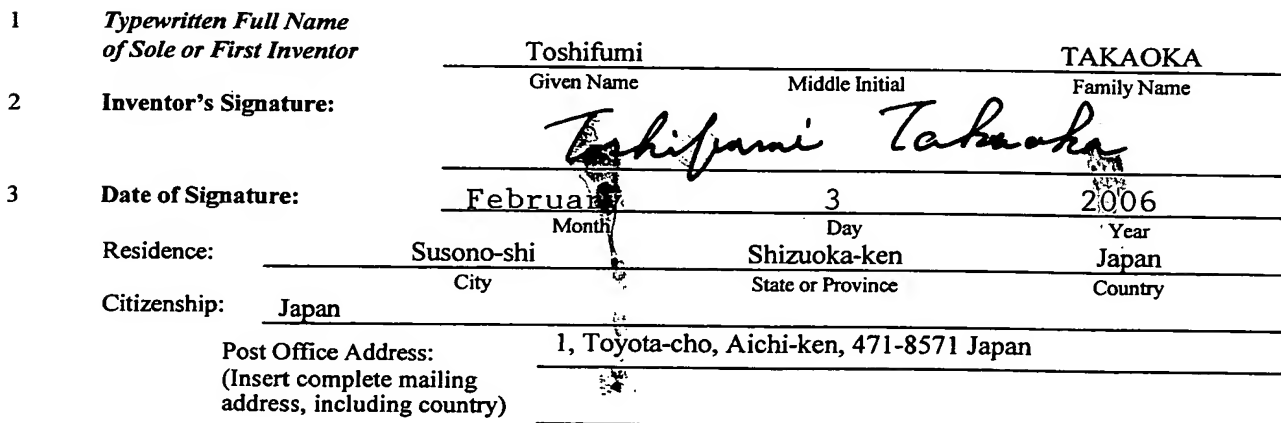 1 Typewritten Full Name
of Sole or First Inventor Toshifumi TAKAOKA
Given Name Middle Initial Family Name
2 Inventor's Signature:
Toshifumi Takaoka
3 Date of Signature: February 3 2006
Month Day Year
Residence: Susono-shi Shizuoka-ken Japan
City State or Province Country
Citizenship: Japan
Post Office Address: 1, Toyota-cho, Aichi-ken, 471-8571 Japan
(Insert complete mailing
address, including country)